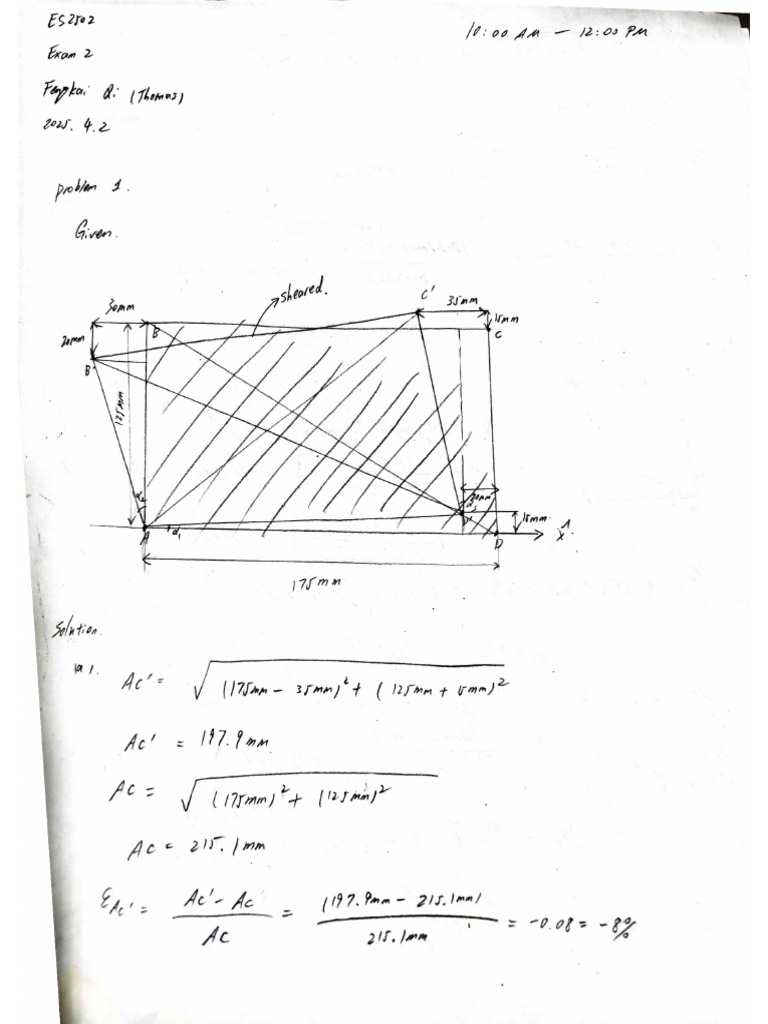 ES2502
10:00 AM — 12:00 PM
Exam 2
Fengkai Qi (Thomas)
2025. 4.2
problem 1.
Given.
sheared.
C'
30mm
35mm
15mm
B
C
20mm
B'
125mm
α2
20mm
D'
15mm
A
α1
D
x
175mm
Solution.
(a).
AC' = √((175mm - 35mm)² + (125mm + 15mm)²
AC' = 197.9mm
AC = √(175mm)² + (125mm)²
AC = 215.1mm
εAC' = (AC' - AC)/AC = (197.9mm - 215.1mm)/215.1mm = -0.08 = -8%